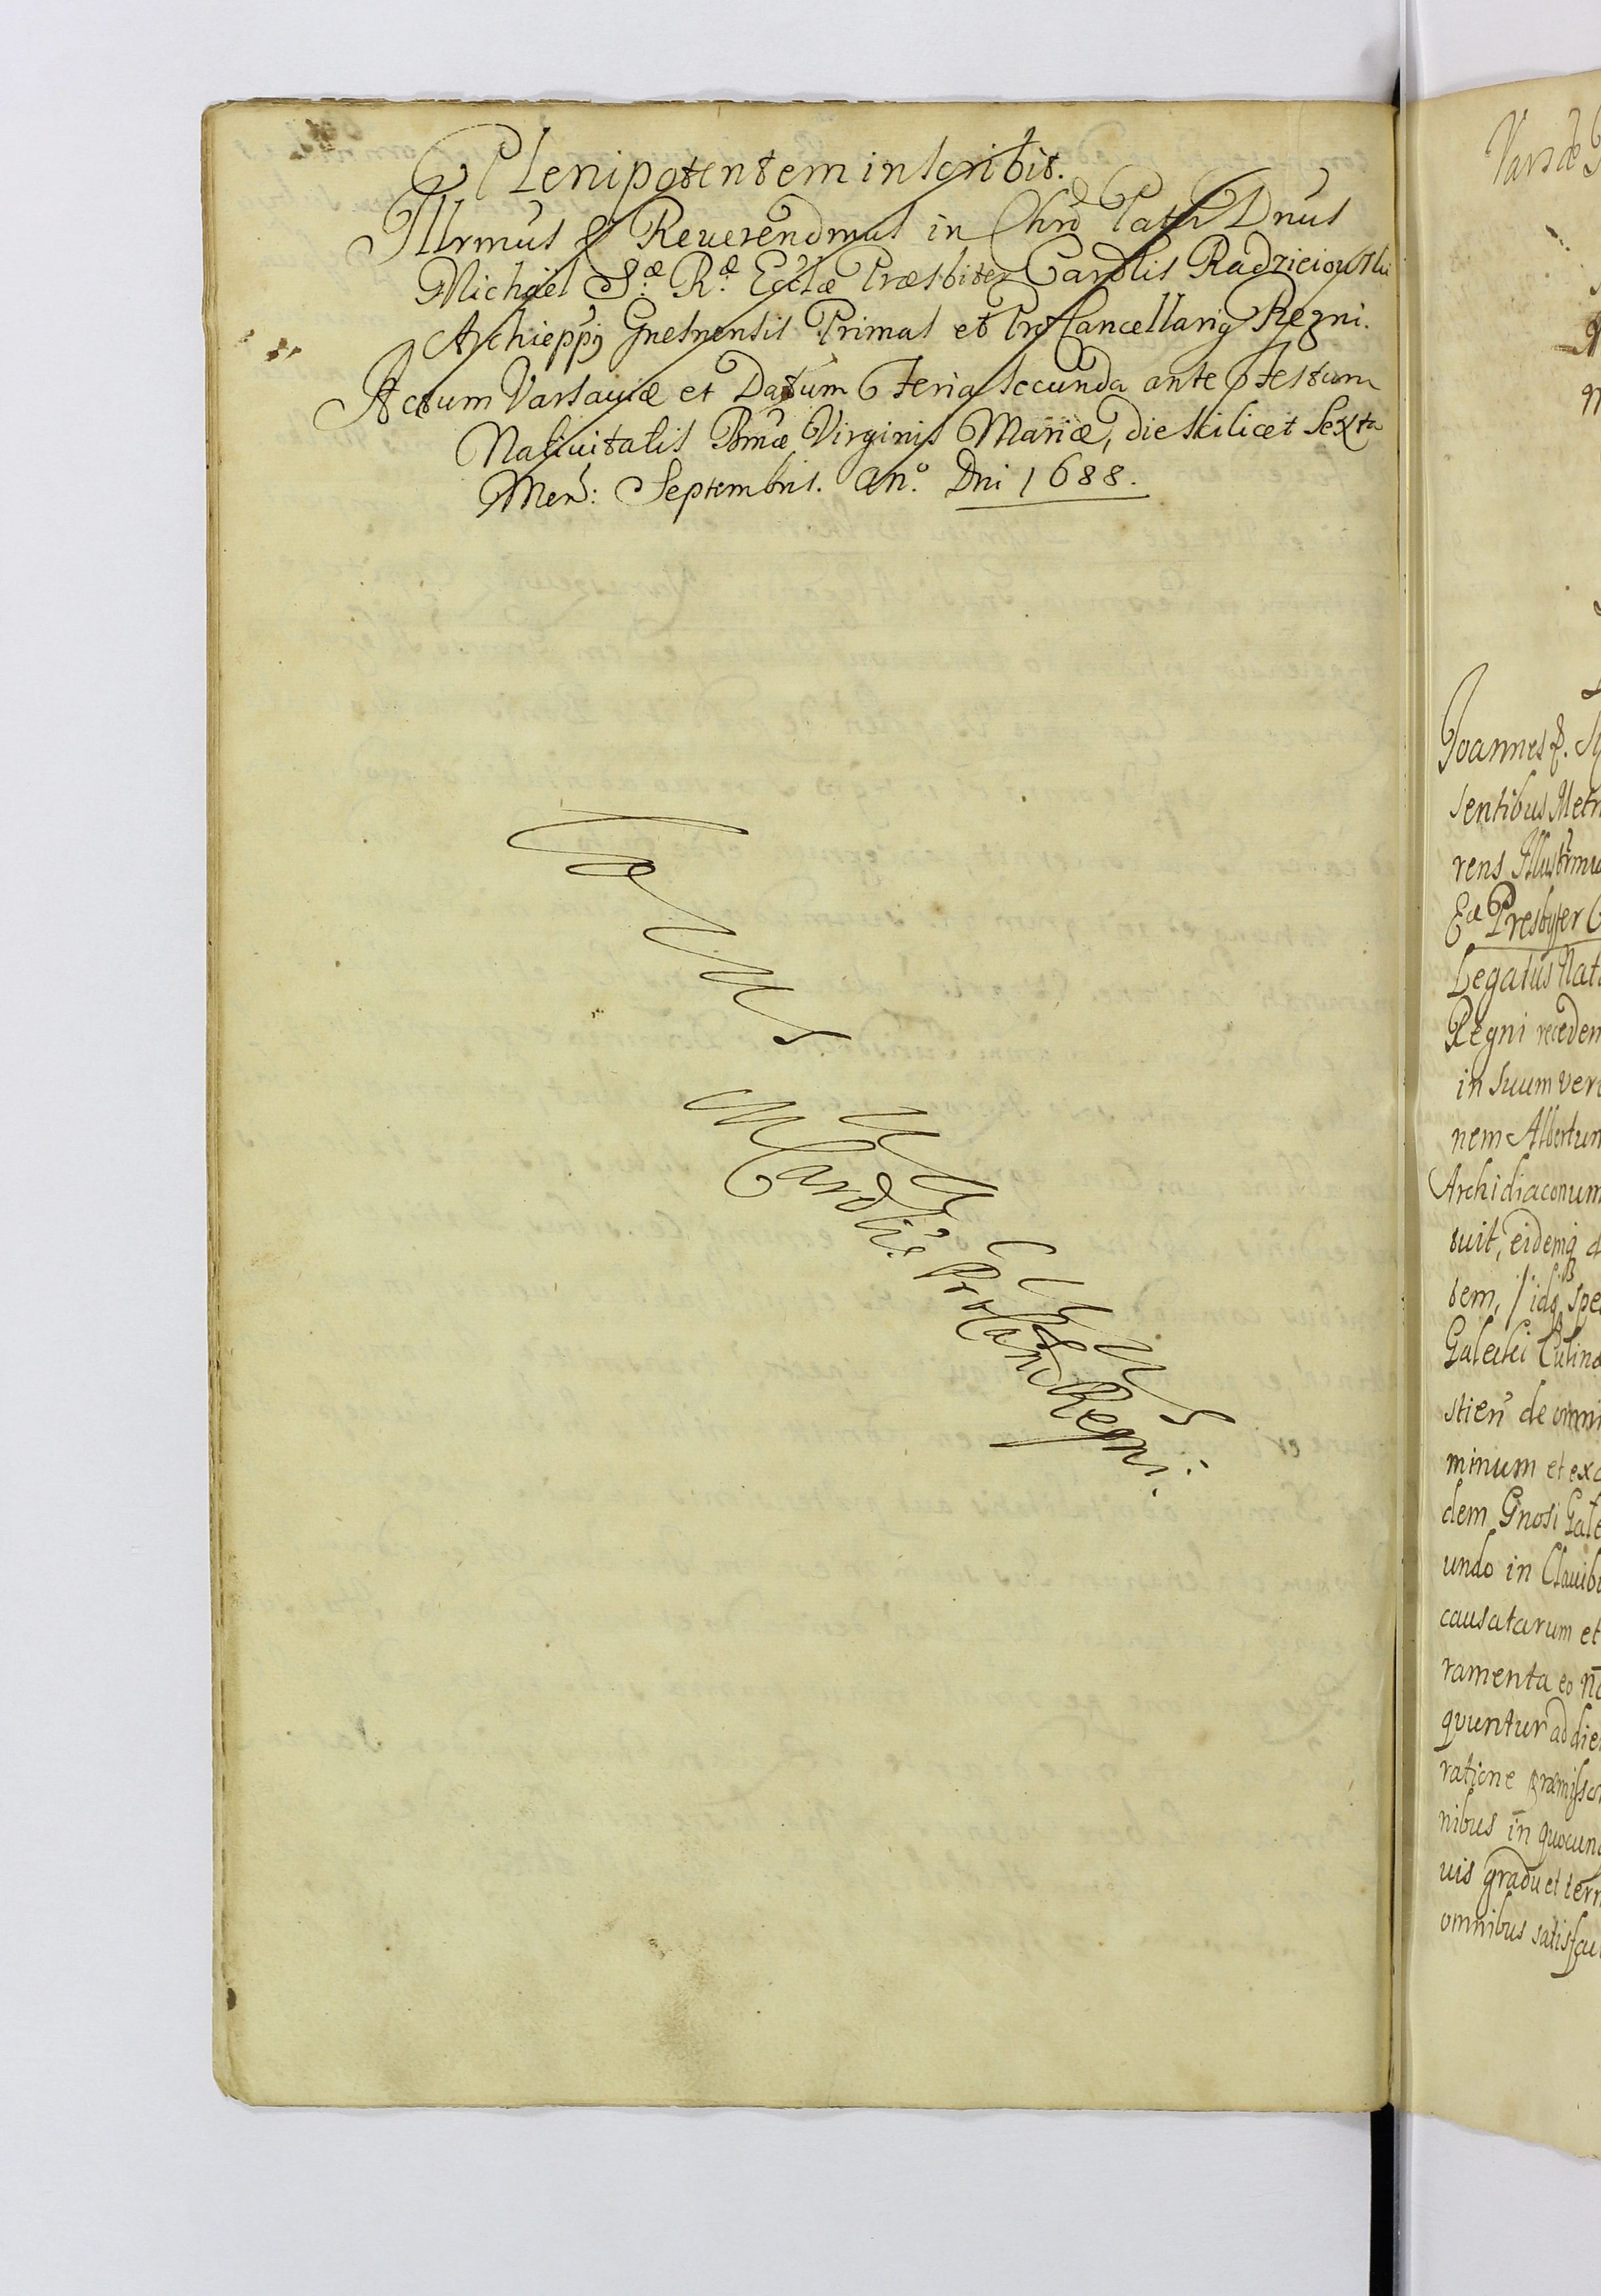 Plenipotentem inscribit.
Illrmus & Reuerendmus in Chro Pater Dnus
Michael S.æ R.æ Ecclæ Præsbiter Cardlis Radzieiowski
Archieppq Gnesnensis Primas et ProCancellariq Regni.
Actum Varsauiæ et Datum feria secunda ante festum
Natiuitatis Bmæ Virginis Mariæ, die scilicet Sexta
Men: Septembris. An.o Dni 1688.
Vacuus
M Cardlis. ProCanc Regni.
Joannes
sentibus Metr
rens Illustrmu
Eæ Presbyter C
Legatus Nat
Regni receden
in suum ver
nem Albertum
Archidiaconum
tuit, eidemq
tem, idq spe
stien de omni
minum et exc
dem Gnosi Gale
undo in Clauib
causatarum et
ramenta eo
quuntur ad die
ratione præmisso
nibus in quocunq
uis gradu et term
omnibus satisfac